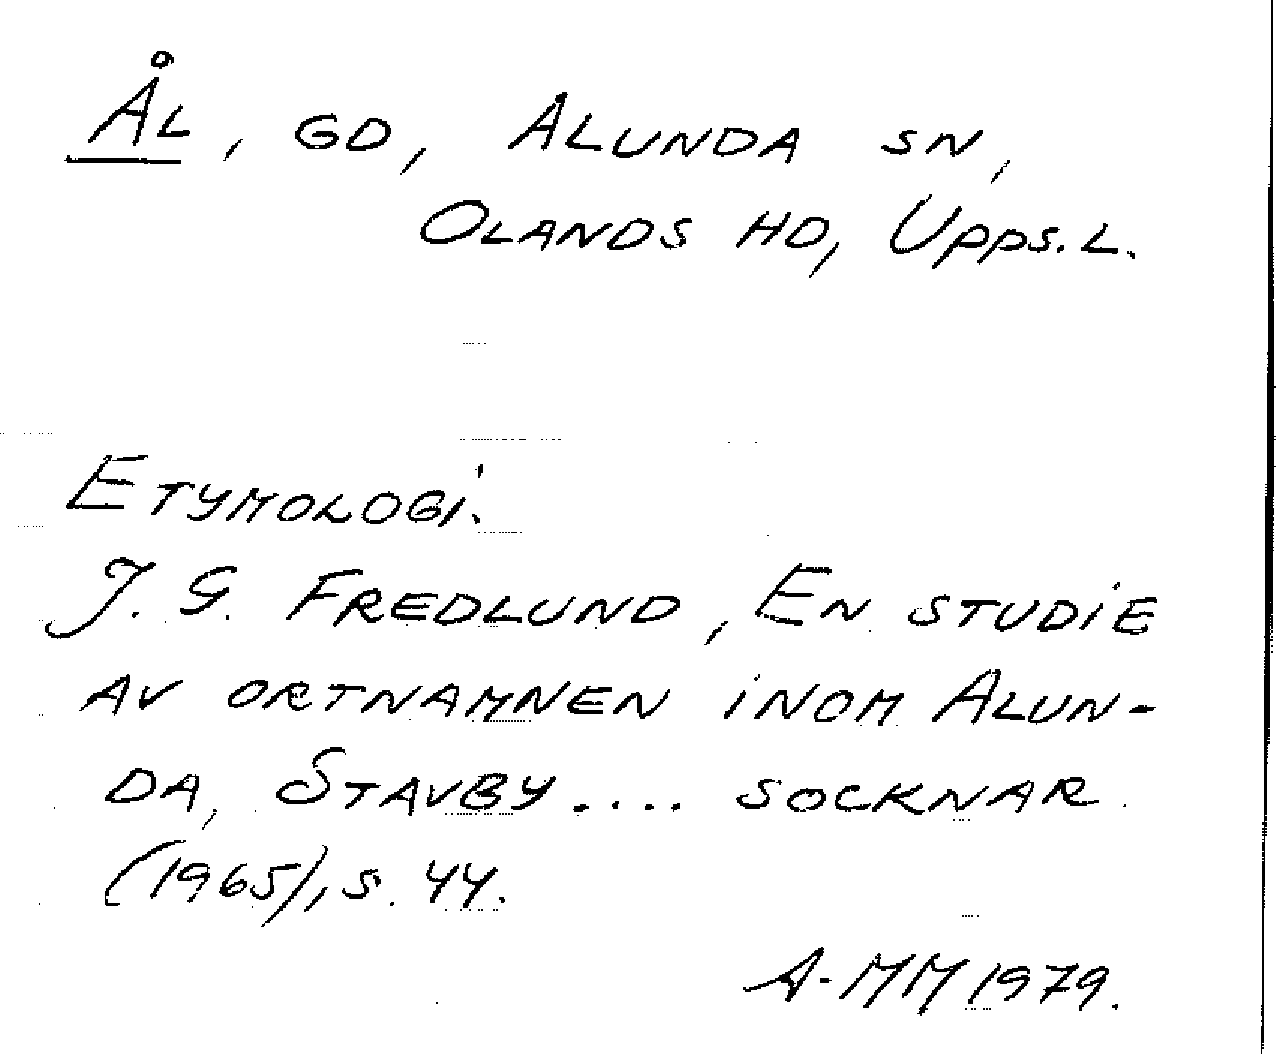 Ål, gd, Alunda sn,
Olands hd, Upps. l.
Etymologi:
J. G. Fredlund, En studie
av ortnamnen inom Alun-
da, Stavby .... socknar
(1965), s. 44.
A-MM 1979.